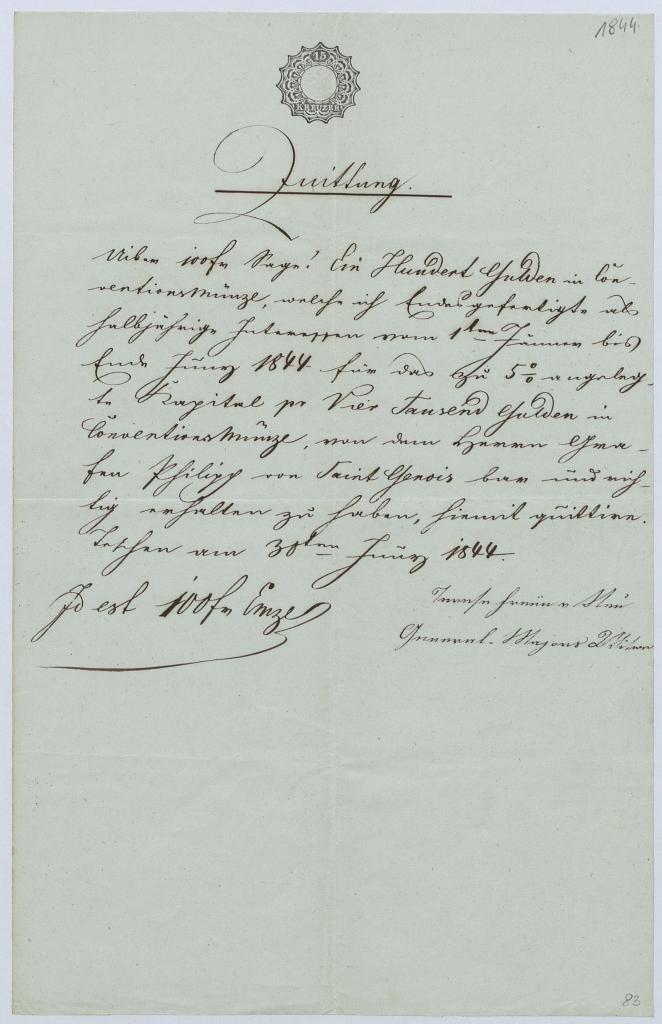 1844
15
KREUZER
Quittung.
Uiber 100 fr Sage! Ein Hundert Gulden in Con-
ventionsmünze, welche ich Endesgefertigte als
halbjährige Interessen vom 1ten Jänner bis
Ende Juny 1844 für das zu 5% angeleg-
te Kapital pr Vier Tausend Gulden in
Conventionsmünze, von dem Herrn Gra-
fen Philipp von Saint Genois bar und rich-
tig erhalten zu haben, hiemit quittire.
Teschen am 30ten Juny 1844.
Id est 100 fr Cmze
Freiin v
General-Majors Witwe
83